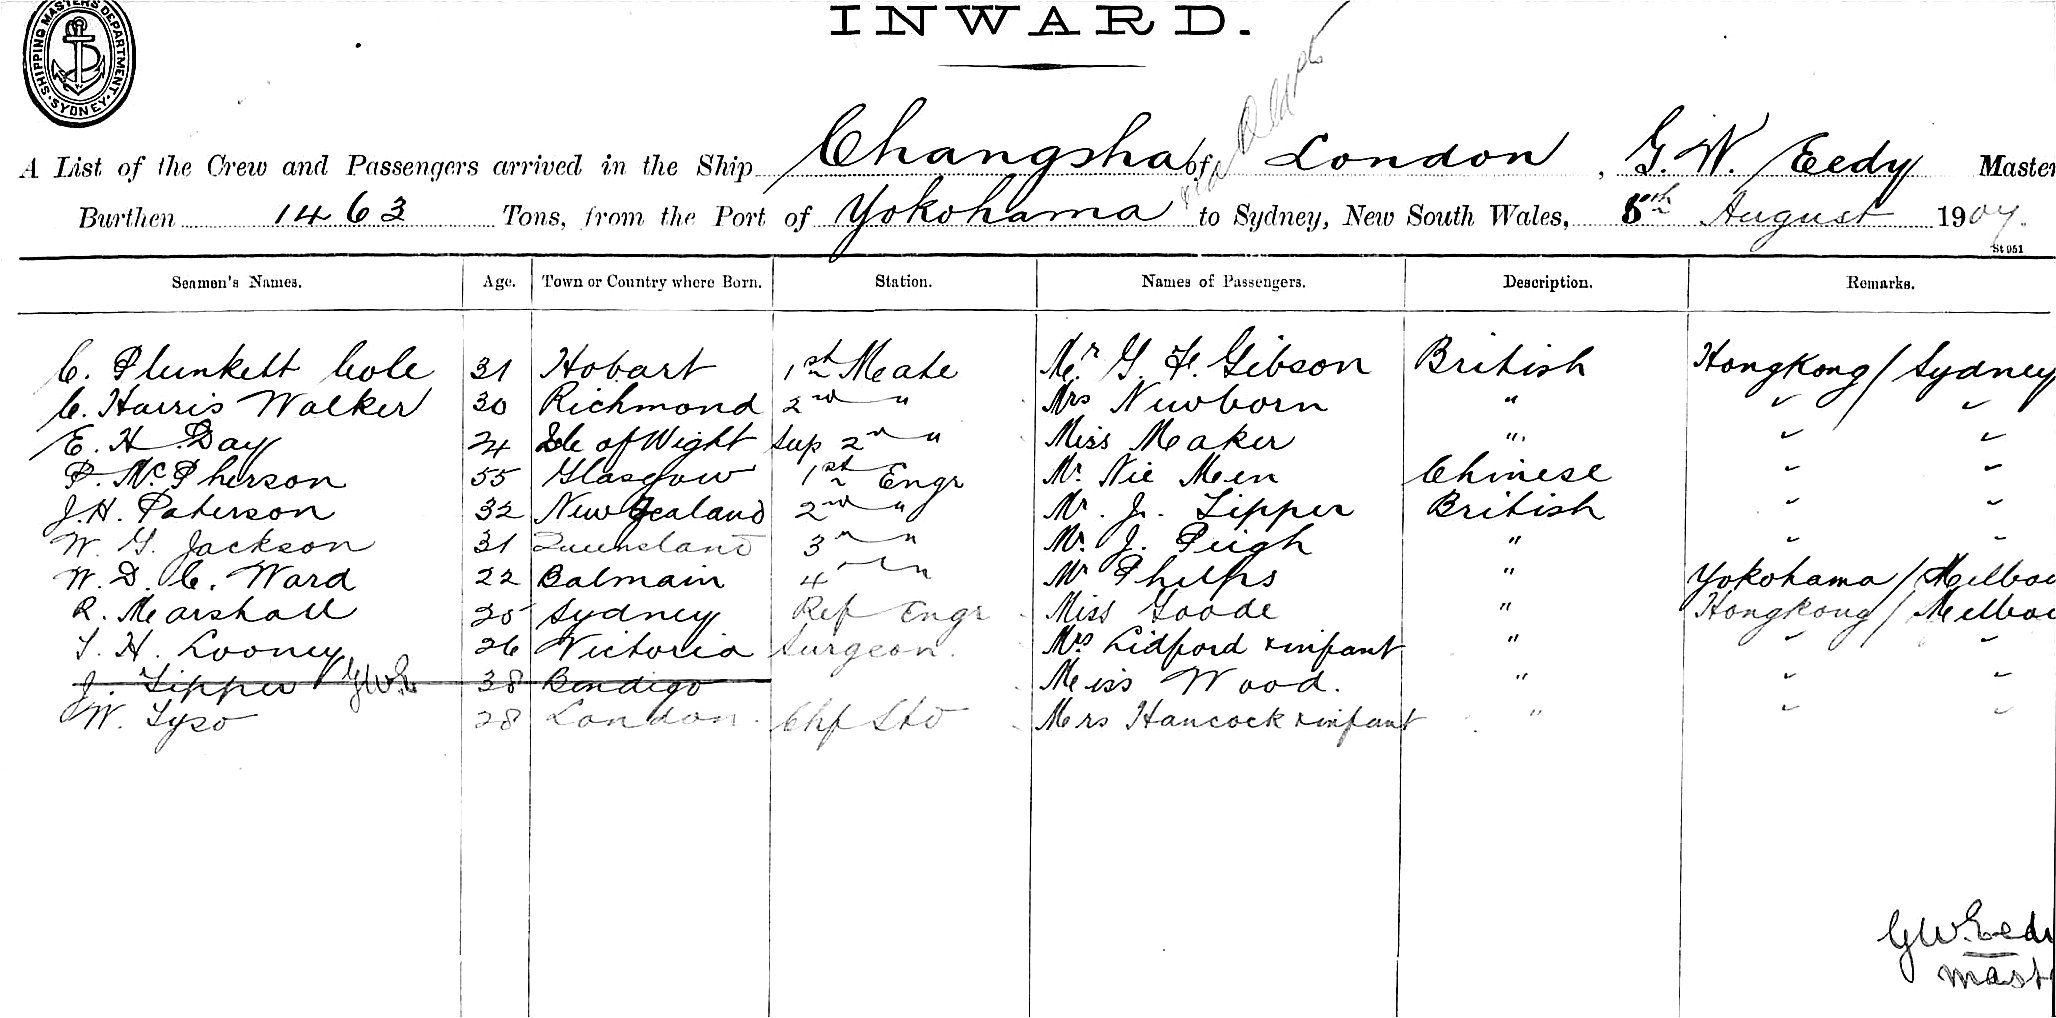 SHIPPING MASTERS DEPARTMENT. SYDNEY
INWARD.
A List of the Crew and Passengers arrived in the Ship Changsha of London, G. W. Eedy Master
Burthen 1463 Tons, from the Port of Yokohama to Sydney, New South Wales, 8th August 1907.
St 951
Seamen's Names. Age. Town or Country where Born. Station. Names of Passengers. Description. Remarks.
C. Plunkett Cole 31 Hobart 1st Meate Mr. G. F. Gibson British Hongkong / Sydney
C. Harris Walker 30 Richmond 2nd " Mrs Newborn " " "
E. H. Day 24 Isle of Wight Sup 2nd " Miss Meaker " " "
P. McPherson 55 Glasgow 1st Engr Mr. Nie Men Chinese " "
J. H. Paterson 32 New Zealand 2nd " Mr. J. Lipper British " "
W. G. Jackson 31 Queensland 3" " Mr. J. Peigh " " "
W. D. C. Ward 22 Balmain 4" " Mr Phelps " Yokohama / Melbou
R. Marshall 25 Sydney Ref Engr Miss Goode " Hongkong / Melbou
T. H. Looney 26 Victoria Surgeon. Mrs Lidford & infant " " "
J. Lipper G.W.E 38 Bendigo Meiss Wood. " " "
W. Tyso 28 London. Chf Std Mers Hancock & infant " " "
G W. Eed
mast